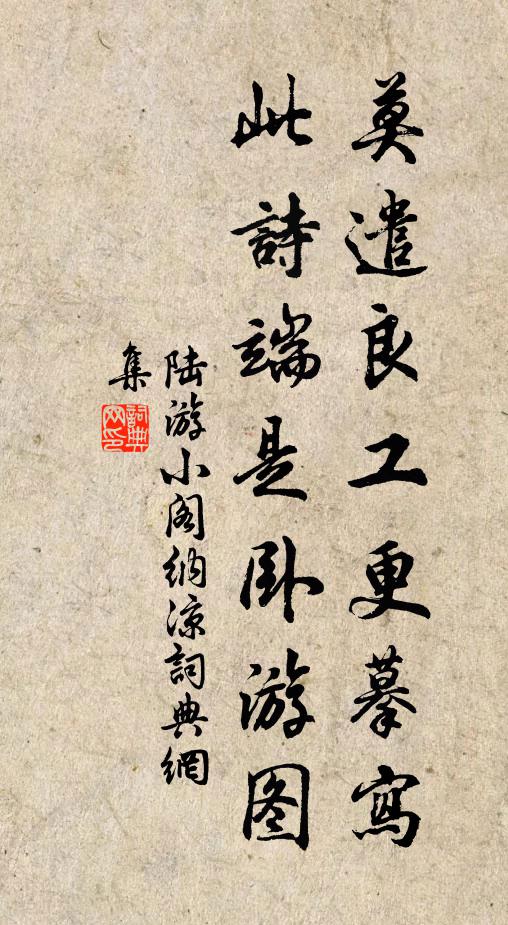 莫遣良工更摹寫
此詩端是卧游图
陆游小阁纳凉詞典網
集
詞典網印